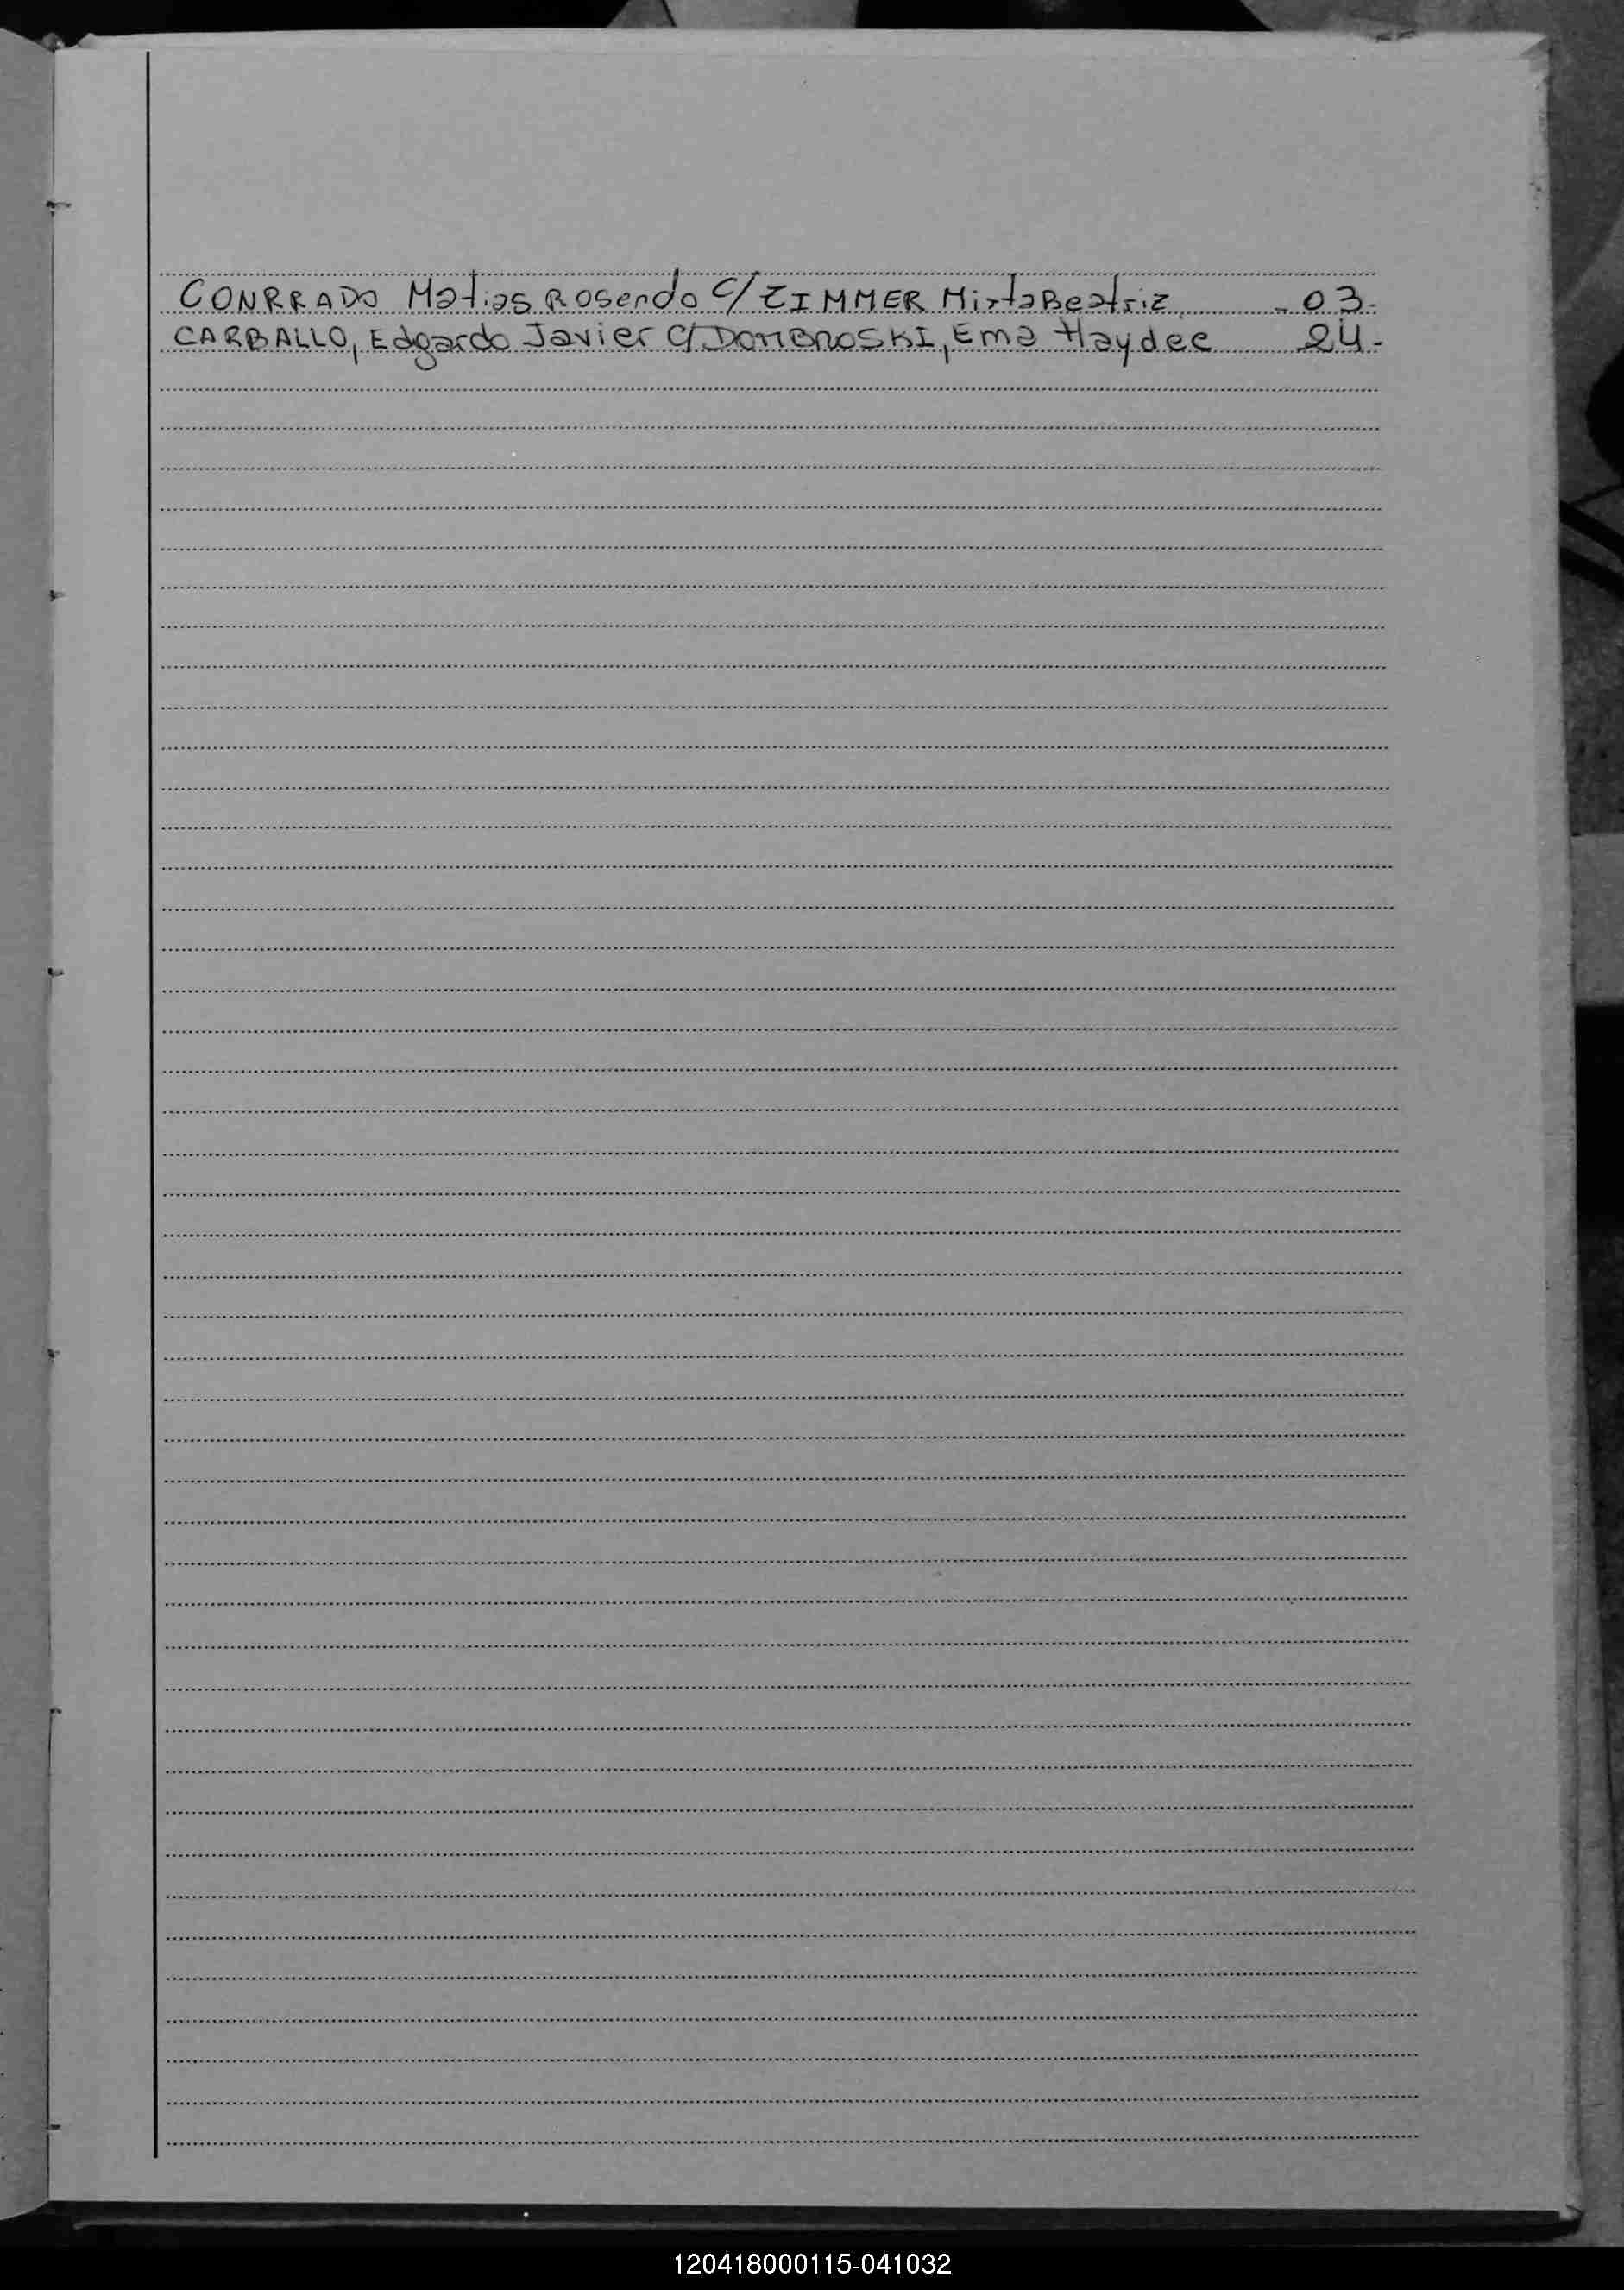 CONRRADO Matias Rosendo C/ ZIMMER Mirta Beatriz - 03-
CARBALLO, Edgardo Javier C/ DOMBROSKI, Ema Haydee 24-
120418000115-041032